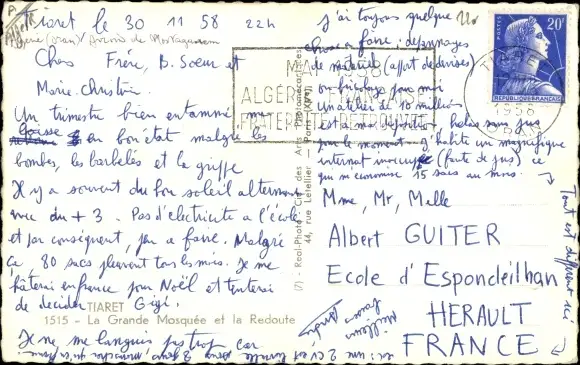 Tiaret le 30 11 58 22h
Chers Frère, B. Sœur et
Marie-Christine
Un trimestre bien entamé ma
en bon état malgré les
bombes, les barbelés et la griffe
Il y a souvent du bon soleil alternant
avec du + 3 - Pas d'électricité à l'école
et par conséquent, peu à faire. Malgré
ça 80 sacs pleuvent tous les mois. Je me
en france pour Noël et tenterai
de décider Gigi.
TIARET
1515 - La Grande Mosquée et la Redoute
Je ne me languis pas trop car
j'ai toujours quelque
chose à faire : dépannages
de matériel
ou bricolage pour moi
Un atelier de 10 millions
est à ma disposition hélas
pour le moment. J'habite un magnifique
internat (faute de jus) ce
qui m'économise 15 sacs au mois.
Tout est différent ici
Meilleurs
MAI 1958
ALGÉRIE
FRATERNITÉ RETROUVÉE
TIARET
1958
POSTES
20F
REPUBLIQUE FRANÇAISE
(7) - Real-Photo - Cie des Arts Photomécaniques
44, rue Letellier - Paris (XVe)
Mme, Mr, Melle
Albert GUITER
Ecole d'Espondeilhan
HERAULT
FRANCE